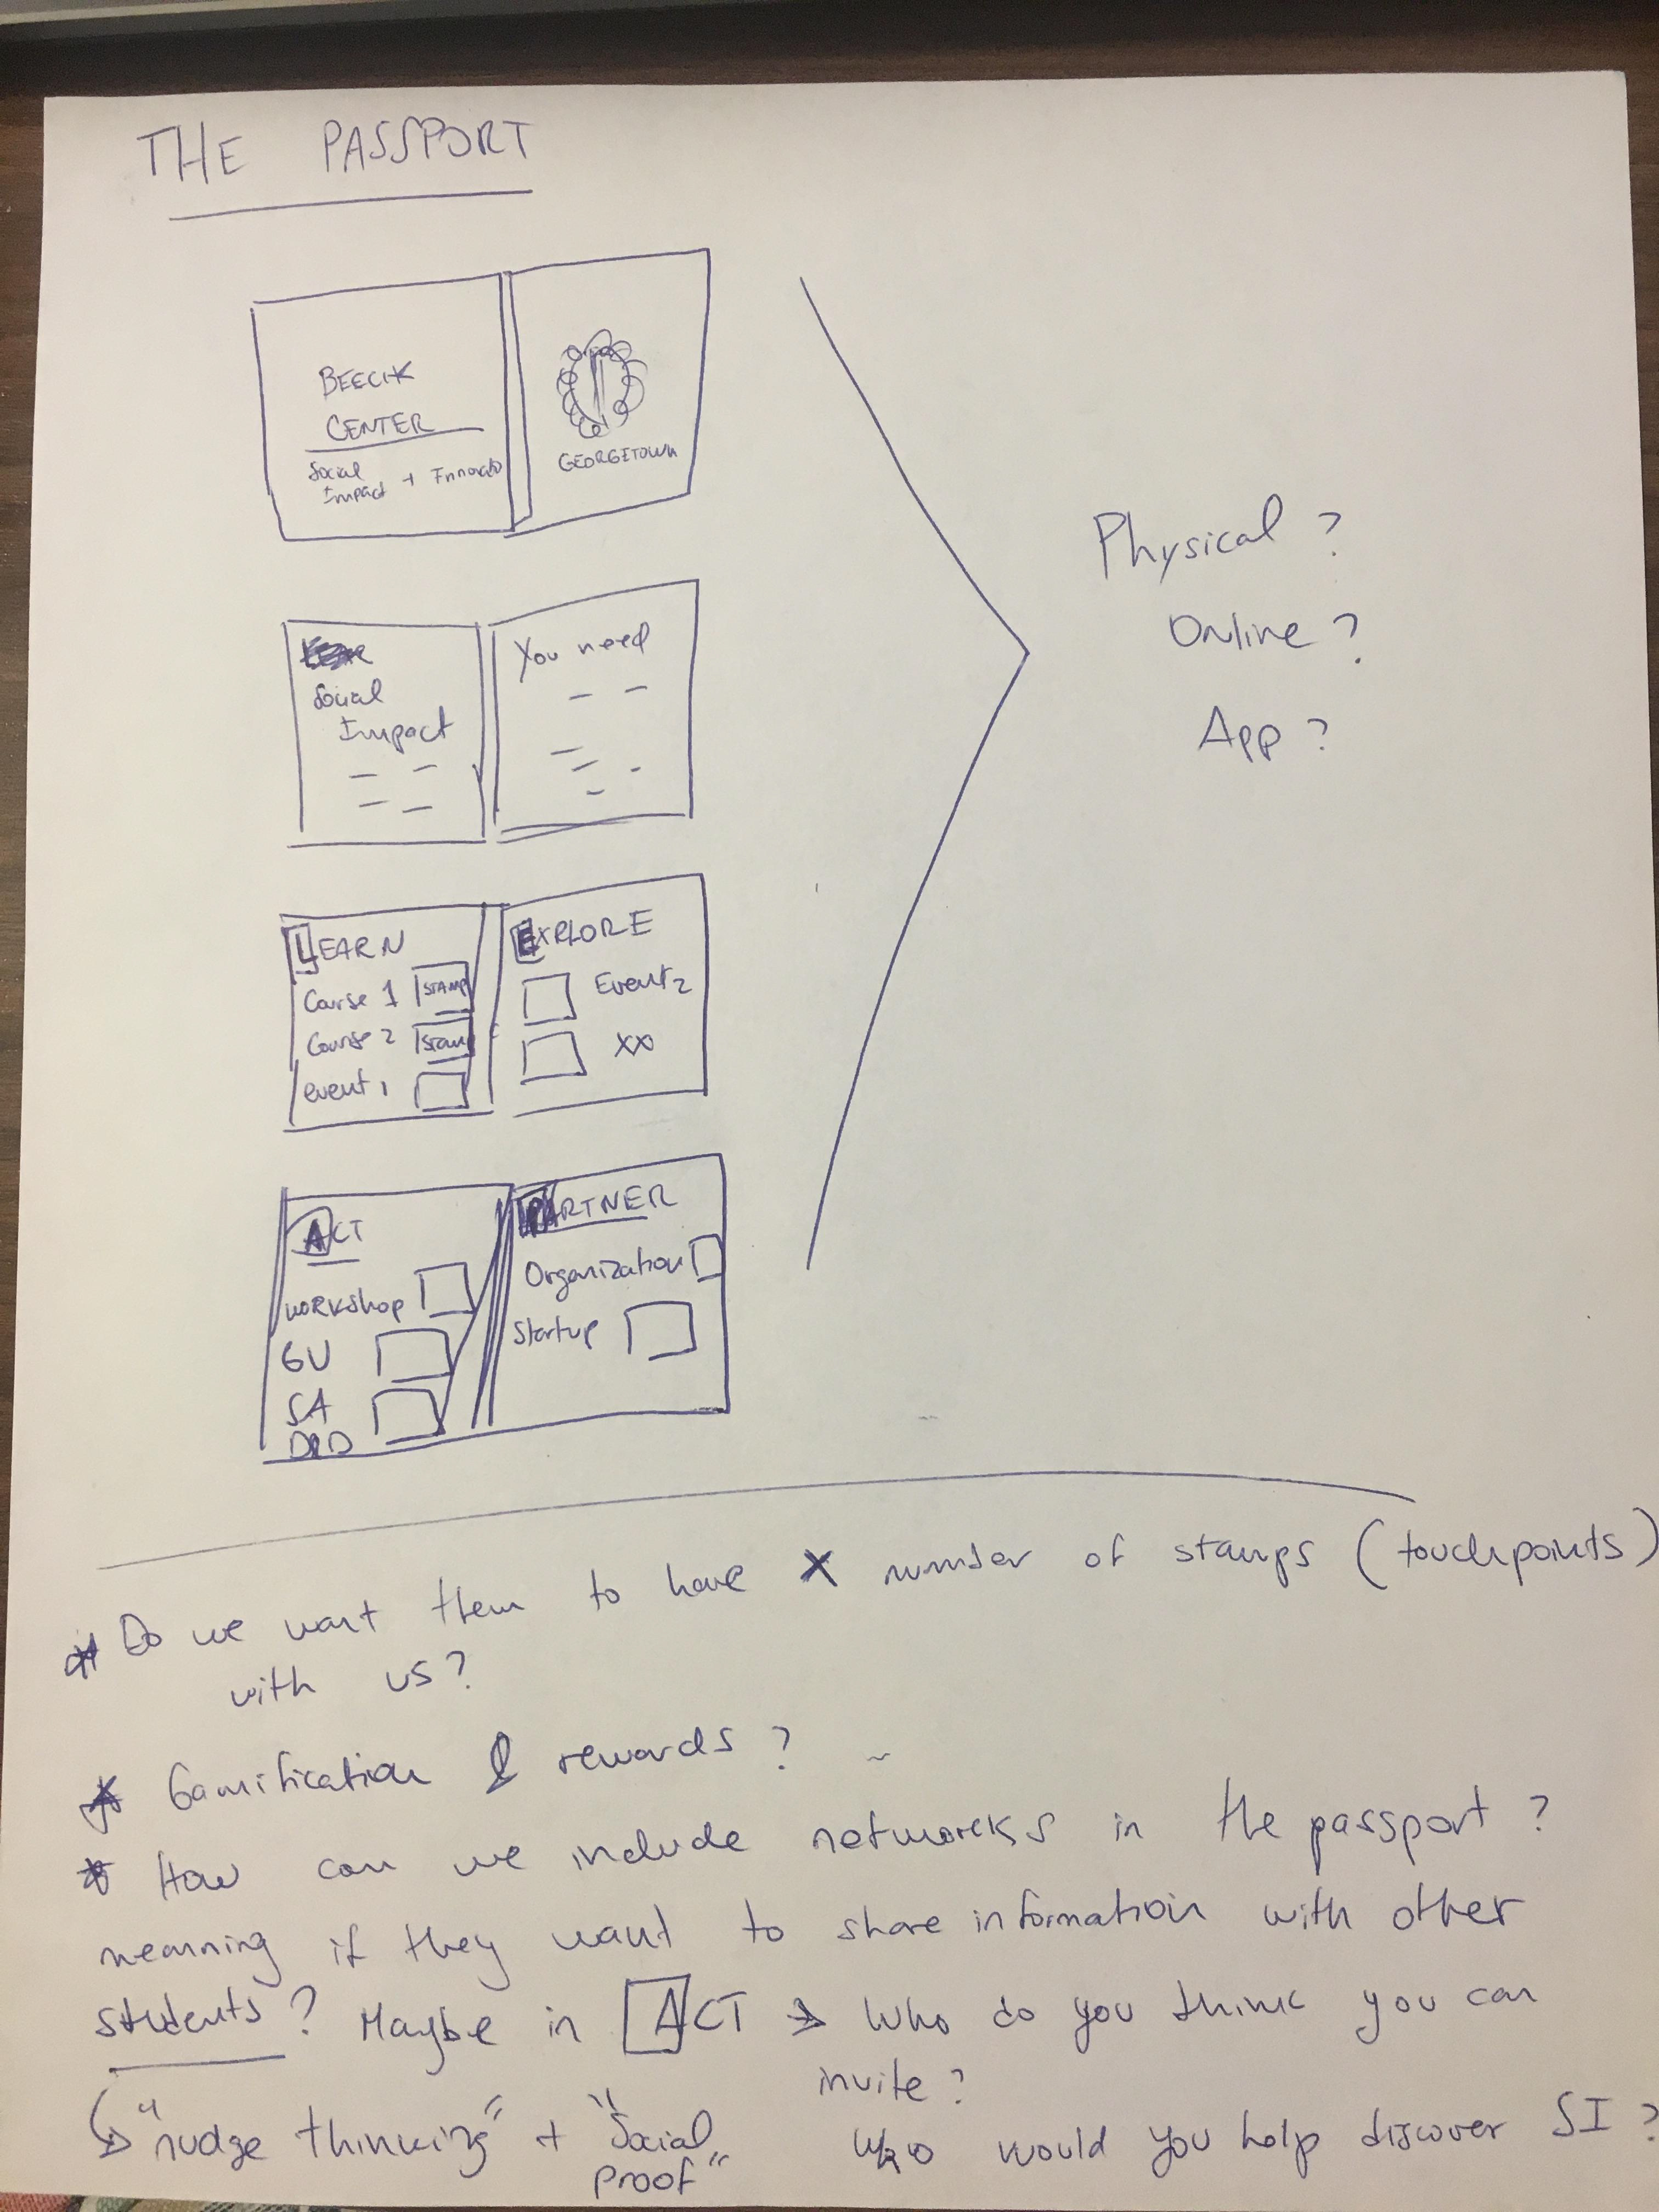 THE PASSPORT
BEECK
CENTER
Social
Impact + Innovatio
GEORGETOWN
Physical ?
Online ?
App ?
Social
Impact
You need
LEARN
Course 1 STAMP
Course 2 Stamp
event 1
EXPLORE
Event 2
XX
ACT
WORKShop
GU
SA
PARTNER
Organization
Startup
* Do we want them to have X number of stamps (touchpoints)
with us?
* Gamification & rewards ?
* How can we include networks in the passport ?
meanning if they want to share information with other
students ? Maybe in ACT → Who do you think you can
invite ?
"nudge thinking" + "Social
proof"
Who would you help discover SI ?